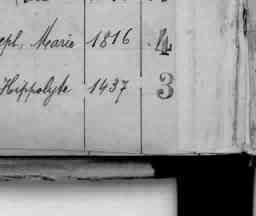 eph, Marie 1816 4
Hippolyte 1437 3